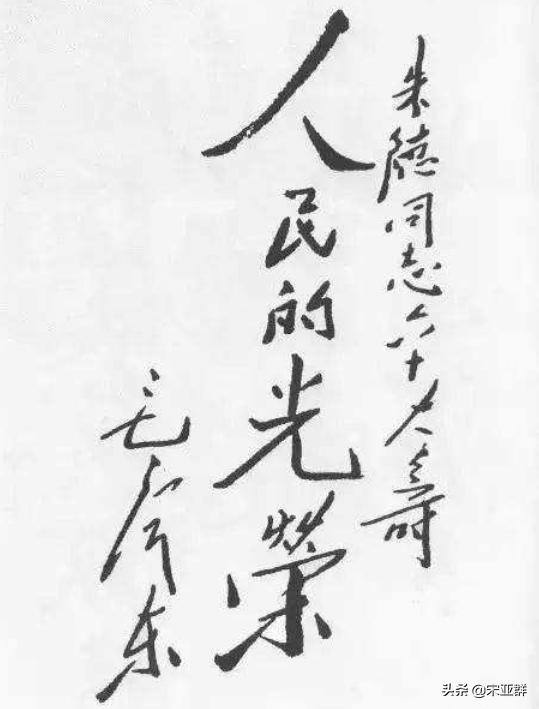 朱德同志六十大寿
人民的光榮
毛泽东
头条 @宋亚群